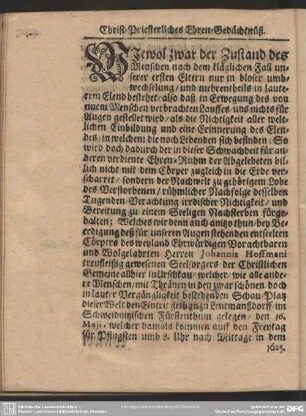 Christ-Priesterliches Ehren-Gedächtnüß.
WJewol zwar der Zustand des
Menschen nach dem kläglichen Fall un-
serer ersten Eltern nur in bloser umb-
wechselung/ und mehrentheils in laute-
rem Elend bestehet/ also daß in Erwegung des von
einem Menschen verbrachten Lauffes uns nichts für
Augen gestellet wird/ als die Nichtigkeit aller welt-
lichen Einbildung und eine Erinnerung des Elen-
des/ in welchem die noch Lebenden sich befinden. So
wird doch dadurch der in dieser Schwachheit für an-
deren verdiente Ehren-Ruhm der Abgelebeten bil-
lich nicht mit dem Cörper zugleich in die Erde ver-
scharret/ sondern der Nachwelt zu gehörigem Lobe
des Verstorbenen/ rühmlicher Nachfolge desselben
Tugenden/ Verachtung irrdischer Nichtigkeit/ und
Bereitung zu einem Seeligen Nachsterben fürge-
halten; Welches wir denn auch anitzo thun bey Be-
erdigung deß für unseren Augen stehenden entseelten
Cörpers des weyland Ehrwürdigen Vorachtbaren
und Wolgelahrten Herren Johannis Hoffmani
treufleißig gewesenen Seelsorgers der Christlichen
Gemeine allhier in Urschkau/ welcher/ wie alle ande-
re Menschen/ mit Thränen in den zwar schönen doch
in lauter Vergänglichkeit bestehenden Schau-Platz
dieser Welt den Eintritt
Schweidnizischen Fürstenthum gelegen/ den 16.
Maji, welcher damals kommen auff den Freytag
für Pfingsten umb 8. Uhr nach Mittage in dem
1625.